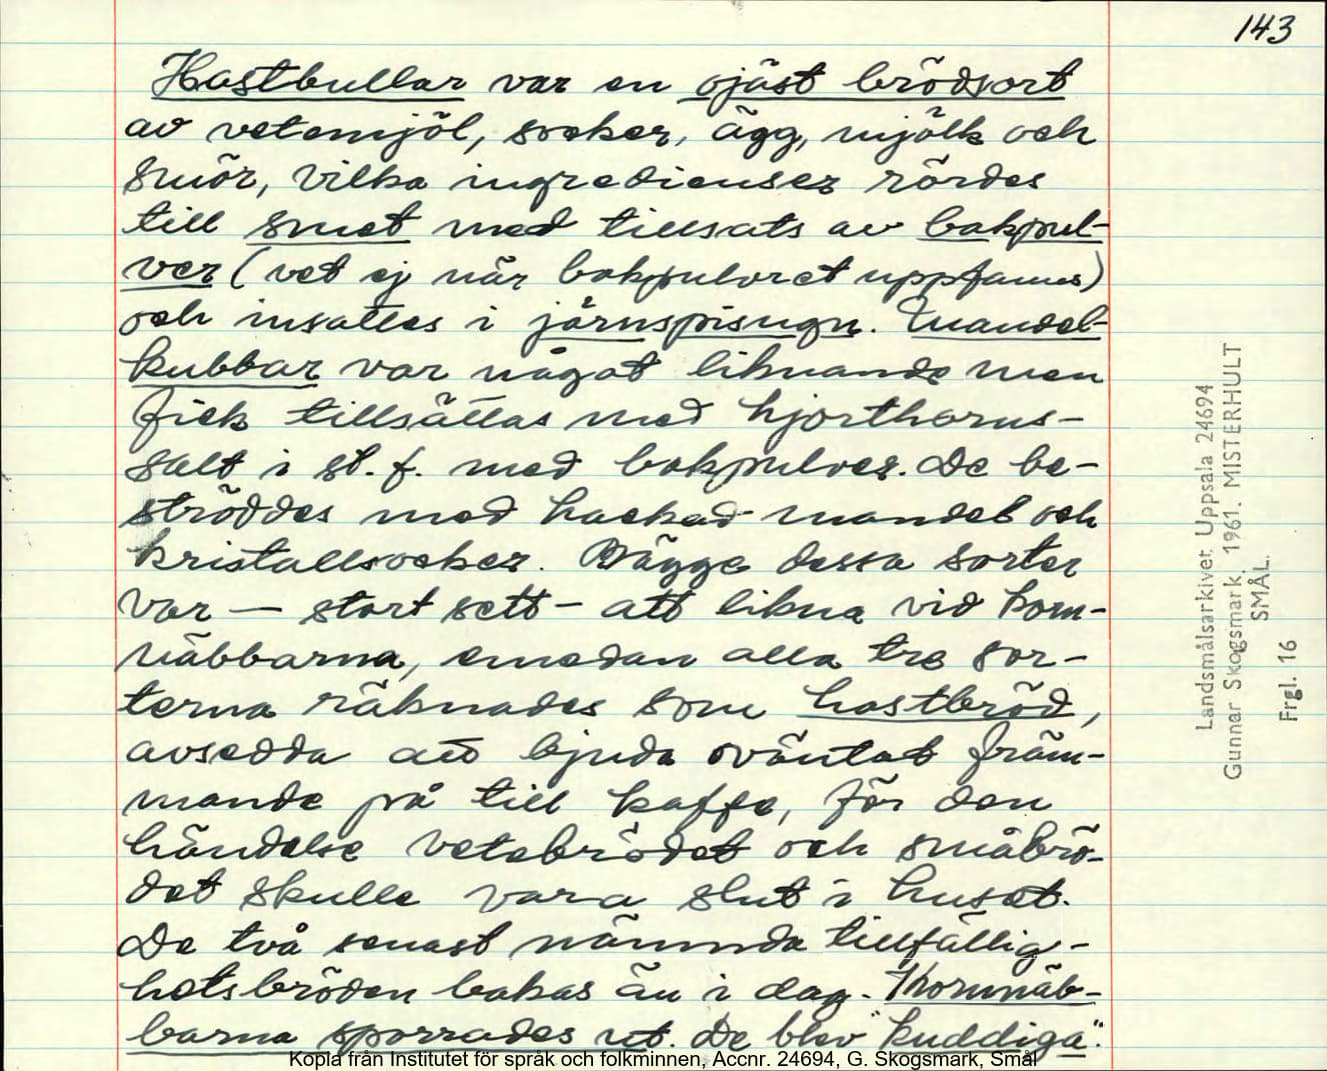 143
Hastbullar var en ojäst brödsort
av vetemjöl, socker, ägg, mjölk och
smör, vilka ingredienser rördes
till smet med tillsats av bakpul-
ver (vet ej när bakpulvret uppfanns)
och insattes i järnspisugn. Mandel-
kubbar var något liknande men
fick tillsättas med hjorthorns-
salt i st. f. med bakpulver. De be-
ströddes med hackad mandel och
kristallsocker. Bägge dessa sorter
var — stort sett – att likna vid korn-
näbbarna, emedan alla tre sor-
terna räknades som hastbröd,
avsedda att bjuda oväntat främ-
mande på till kaffe, för den
händelse vetebrödet och småbrö-
det skulle vara slut i huset.
De två senast nämnda tillfällig-
hetsbröden bakas än i dag. Kornnäb-
barna sporrades ut. De blev "kuddiga".
Landsmålsarkivet. Uppsala 24694
Gunnar Skogsmark. 1961. MISTERHULT
SMÅL.
Frgl. 16
Kopia från Institutet för språk och folkminnen, Accnr. 24694, G. Skogsmark, Smål